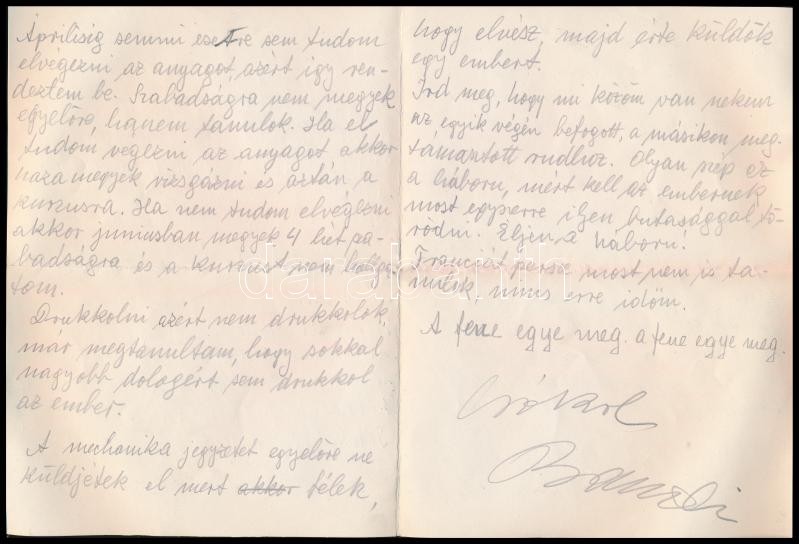 Áprilisig semmi esetre sem tudom
elvégezni az anyagot, azért így ren-
deztem be. Szabadságra nem megyek
egyelőre, hanem tanulok. Ha el
tudom végezni az anyagot akkor
haza megyek vizsgázni és aztán a
kurzusra. Ha nem tudom elvégezni
akkor júniusban megyek 4 hét sza-
badságra és a kurzust nem hallga-
tom.
Drukkolni azért nem drukkolok,
már megtanultam, hogy sokkal
nagyobb dologért sem drukkol
az ember.
A mechanika jegyzetet egyelőre ne
küldjétek el mert akkor félek,
hogy elvész, majd érte küldök
egy embert.
Írd meg, hogy mi közöm van nekem
az, egyik végén befogott, a másikon meg-
támasztott rudhoz. Olyan szép ez
a háboru, mért kell az embernek
most egyszerre ilyen butasággal tö-
rődni. Éljen a háboru.
Franciát persze most nem is ta-
nulok, nincs erre időm.
A fene egye meg. a fene egye meg.
Csókol
darabanth